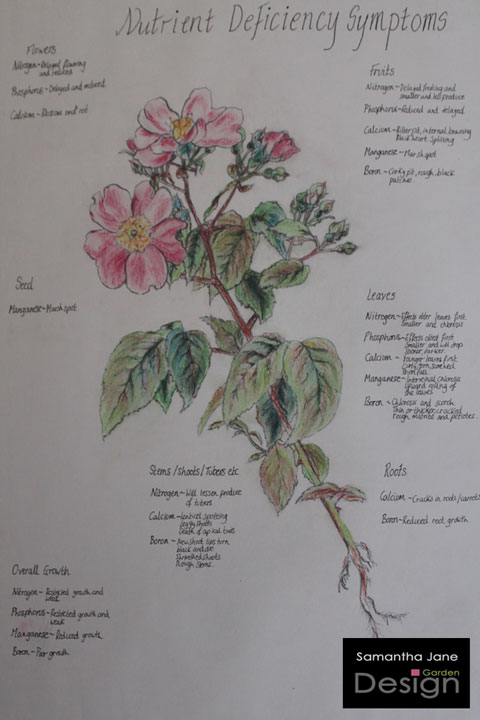 Nutrient Deficiency Symptoms
Flowers
Nitrogen - Delayed flowering
and reduced
Phosphorus - Delayed and reduced
Calcium - Blossom end rot
Fruits
Nitrogen - Delayed fruiting and
smaller and less produce
Phosphorus - Reduced and delayed
Calcium - Bitter pit, internal browning
Black heart. Splitting
Manganese - Marsh spot
Boron - Corky pit, rough, black
patches.
Seed
Manganese - Marsh spot
Leaves
Nitrogen - Effects older leaves first
Smaller and chlorosis
Phosphorus - Effects oldest first
Smaller and will drop
sooner, darker.
Calcium - Younger leaves first
Curl, torn, scorched
Manganese - Interveinal chlorosis
Upward rolling of
the leaves
Boron - Chlorosis and scorch.
Thin or thicker, crackled
rough midribs and petioles.
Stems/Shoots/Tubers etc
Nitrogen - Will lessen produce
of tubers
Calcium - Lenticel spotting
Leggy shoots
Death of apical buds
Boron - New shoot tips turn
black and die
Shrivelled shoots
Rough stems.
Roots
Calcium - Cracks in roots/carrots
Boron - Reduced root growth
Overall Growth
Nitrogen - Restricted growth and
weak
Phosphorus - Restricted growth and
weak
Manganese - Reduced growth
Boron - Poor growth
Samantha Jane
Garden
Design